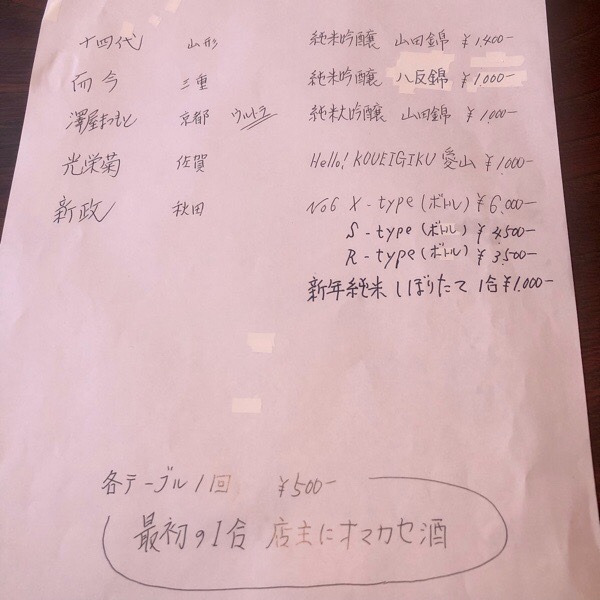 十四代 山形 純米吟醸 山田錦 ¥1,400-
而今 三重 純米吟醸 八反錦 ¥1,000-
澤屋まつもと 京都 ウルトラ 純米大吟醸 山田錦 ¥1,000-
光栄菊 佐賀 Hello! KOUEIGIKU 愛山 ¥1,000-
新政 秋田 No6 X-type (ボトル) ¥6,000-
S-type (ボトル) ¥4,500-
R-type (ボトル) ¥3,500-
新年純米 しぼりたて 1合 ¥1,000-
各テーブル1回 ¥500-
最初の1合 店主にオマカセ酒